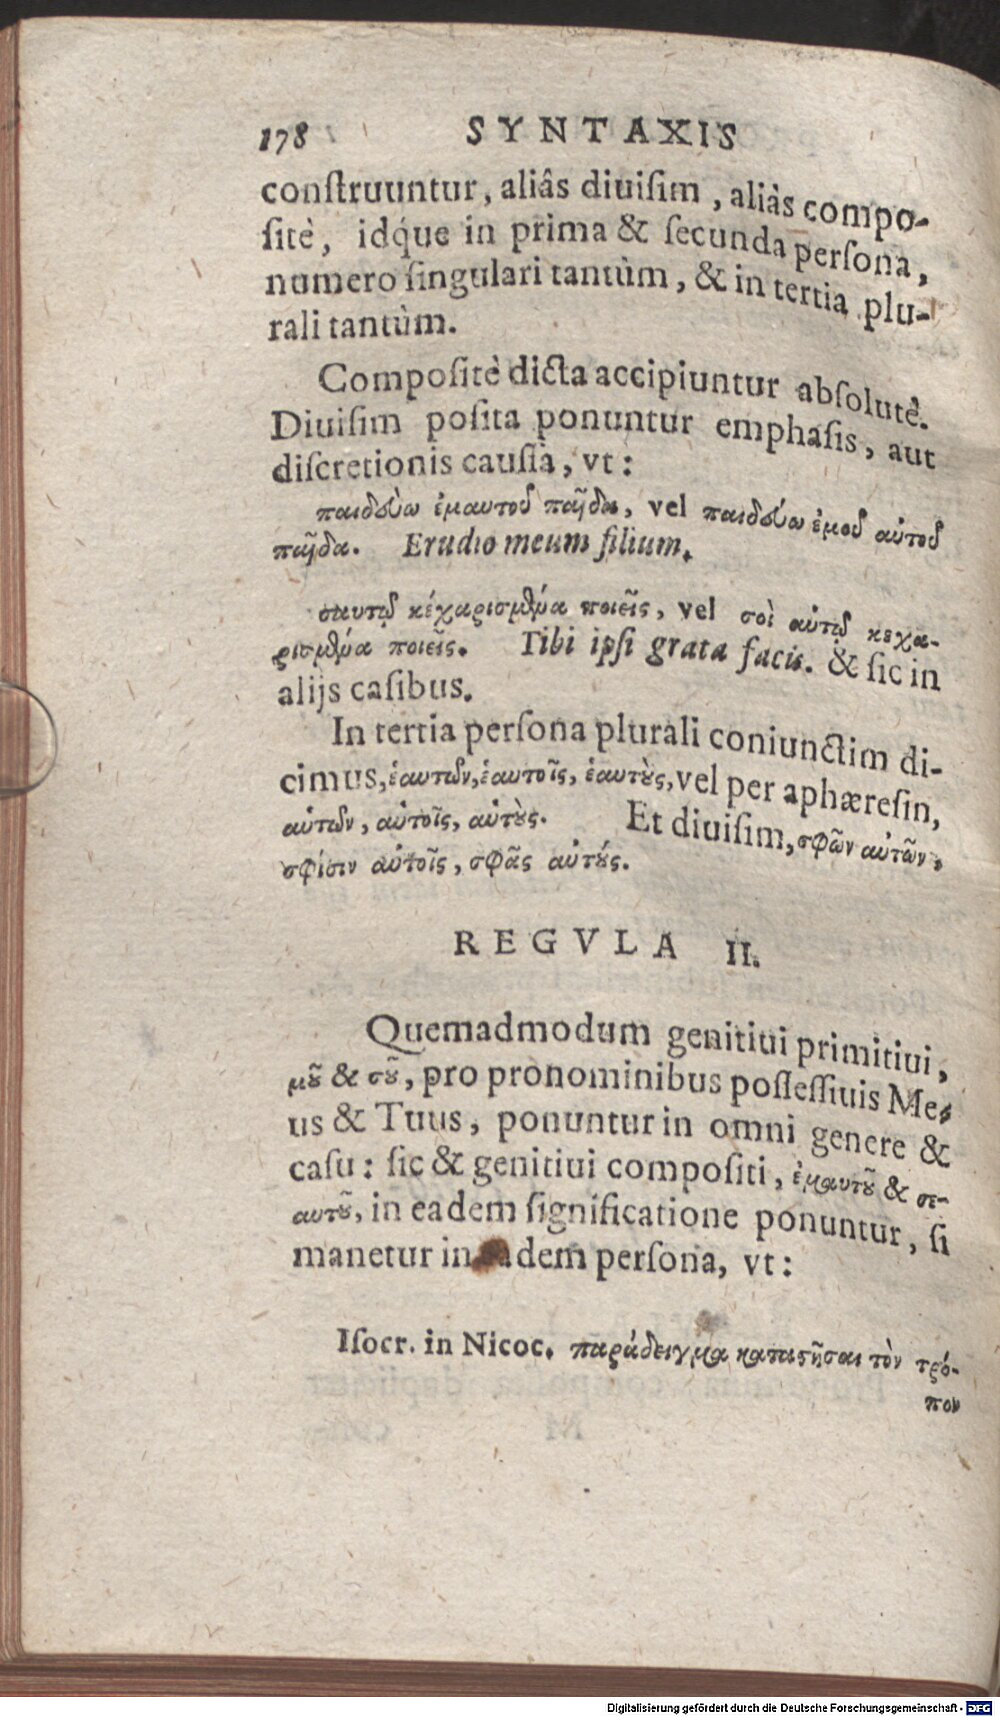 178 SYNTAXIS
conſtruuntur, aliâs diuiſim, aliàs compo-
ſitè, idq́ue in prima & ſecunda perſona,
numero ſingulari tantùm, & in tertia plu-
rali tantùm.
Compoſitè dicta accipiuntur abſolutè.
Diuiſim poſita ponuntur emphaſis, aut
diſcretionis cauſſa, vt:
παιδεύω ἐμαυτοῦ παῖδα, vel παιδεύω ἐμοῦ αὐτοῦ
παῖδα. Erudio meum filium.
σαυτῷ κεχαρισμένα ποιεῖς, vel σοὶ αὐτῷ κεχα-
ρισμένα ποιεῖς. Tibi ipſi grata facis. & ſic in
alijs caſibus.
In tertia perſona plurali coniunctim di-
cimus, ἑαυτῶν, ἑαυτοῖς, ἑαυτοὺς, vel per aphæreſin,
αὑτῶν, αὑτοῖς, αὑτοὺς. Et diuiſim, σφῶν αὐτῶν,
σφίσιν αὐτοῖς, σφᾶς αὐτούς.
REGVLA II.
Quemadmodum genitiui primitiui,
μοῦ & σοῦ, pro pronominibus poſſeſſiuis Me-
us & Tuus, ponuntur in omni genere &
caſu: ſic & genitiui compoſiti, ἐμαυτοῦ & σε-
αυτοῦ, in eadem ſignificatione ponuntur, ſi
manetur in eadem perſona, vt:
Iſocr. in Nicoc. παράδειγμα καταστῆσαι τὸν τρό-
πον
Digitalisierung gefördert durch die Deutsche Forschungsgemeinschaft - DFG